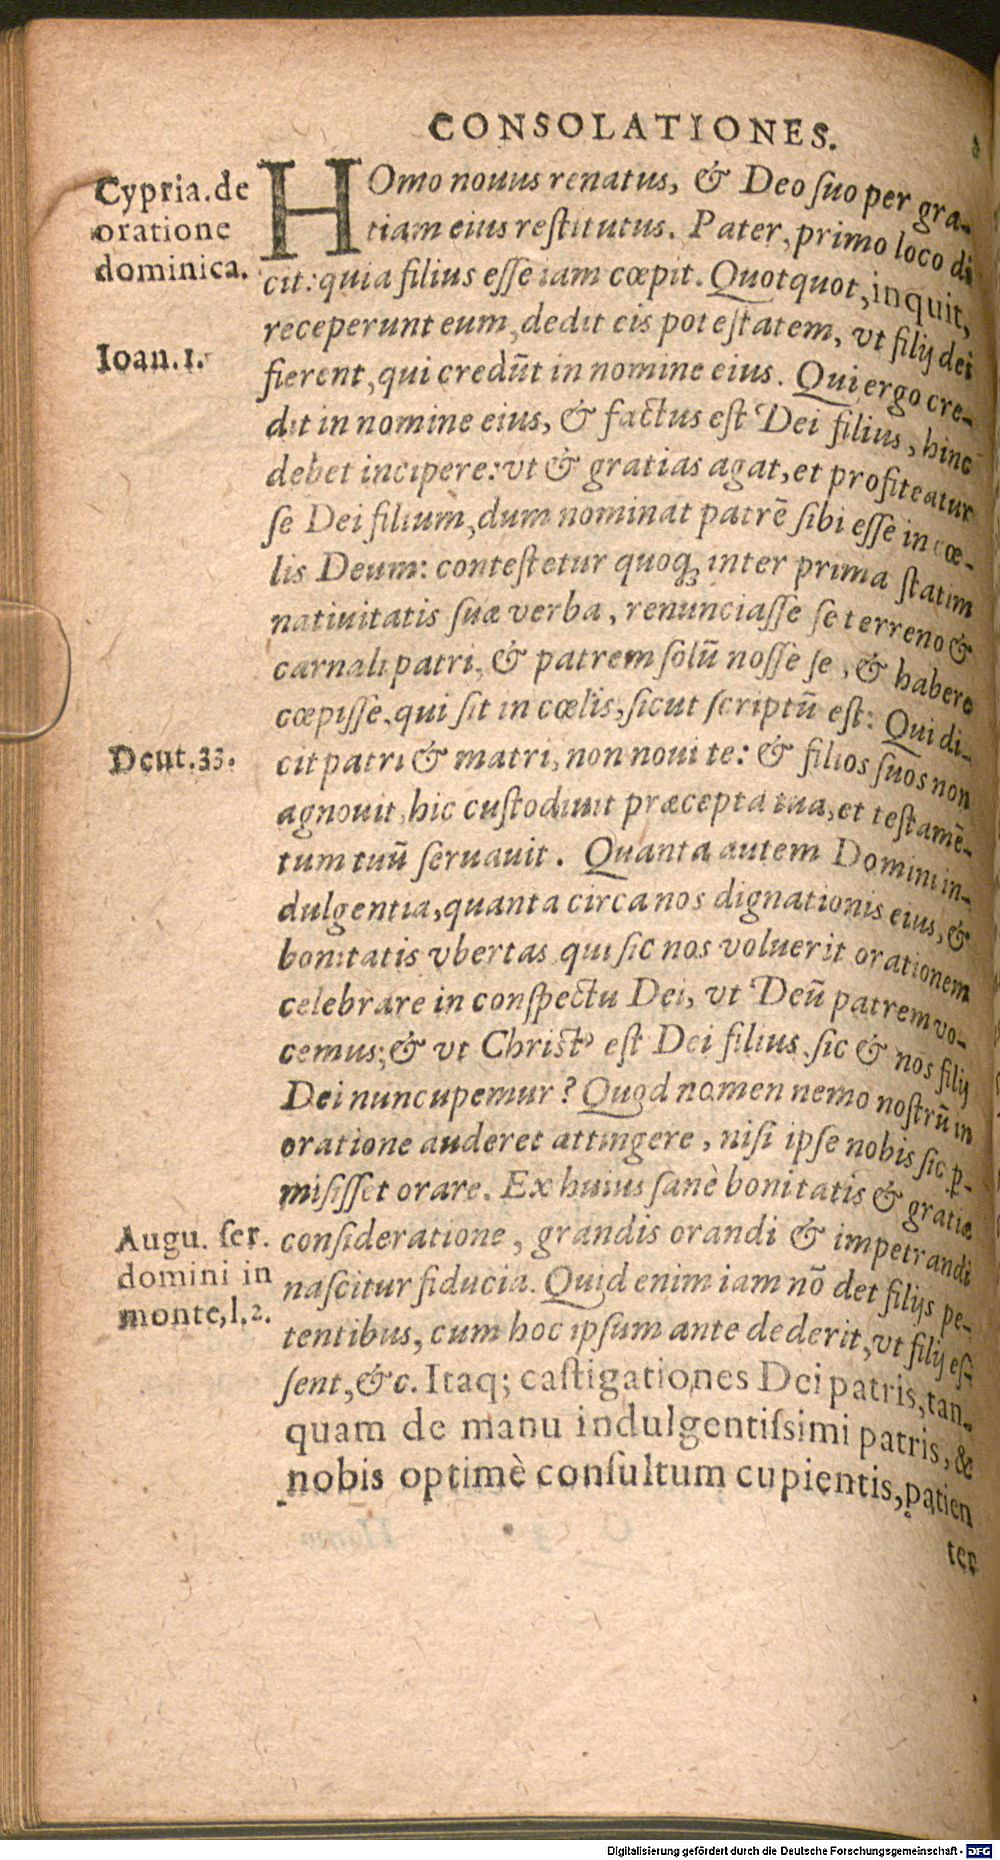 CONSOLATIONES.
Cypria. de
oratione
dominica.
HOmo nouus renatus, & Deo suo per gra-
tiam eius restitutus. Pater, primo loco di
cit: quia filius esse iam cœpit. Quotquot, inquit,
receperunt eum, dedit eis potestatem, vt filij dei
Ioan. 1.
fierent, qui credũt in nomine eius. Qui ergo cre-
dit in nomine eius, & factus est Dei filius, hinc
debet incipere: vt & gratias agat, et profiteatur
se Dei filium, dum nominat patrẽ sibi esse in cœ-
lis Deum: contestetur quoq; inter prima statim
natiuitatis suæ verba, renunciasse se terreno &
carnali patri, & patrem solũ nosse se, & habere
cœpisse, qui sit in cœlis, sicut scriptũ est: Qui di-
Deut. 33.
cit patri & matri, non noui te: & filios suos non
agnouit, hic custodiuit præcepta tua, et testamẽ-
tum tuũ seruauit. Quanta autem Domini in-
dulgentia, quanta circa nos dignationis eius, &
bonitatis vbertas qui sic nos voluerit orationem
celebrare in conspectu Dei, vt Deũ patrem vo-
cemus; & vt Christꝰ est Dei filius, sic & nos filij
Dei nuncupemur? Quod nomen nemo nostrũ in
oratione auderet attingere, nisi ipse nobis sic ꝑ-
misisset orare. Ex huius sanè bonitatis & gratiæ
Augu. ser.
domini in
monte, l. 2.
consideratione, grandis orandi & impetrandi
nascitur fiducia. Quid enim iam nõ det filijs pe-
tentibus, cum hoc ipsum ante dederit, vt filij es-
sent, &c. Itaq; castigationes Dei patris, tan-
quam de manu indulgentissimi patris, &
nobis optimè consultum cupientis, patien
ter
Digitalisierung gefördert durch die Deutsche Forschungsgemeinschaft - DFG